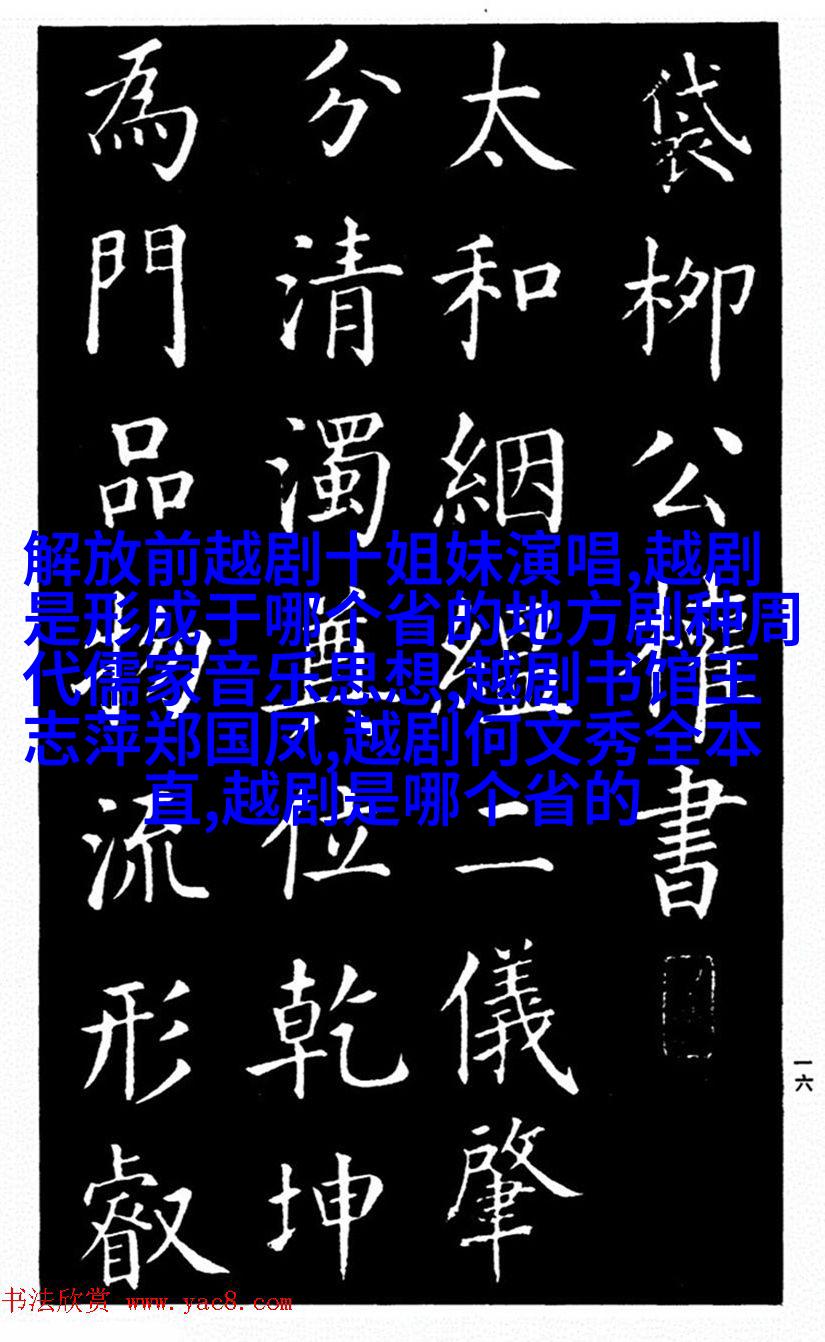 袋柳公權書
太和絪縕二儀肇
分清濁位乾坤
為門品物流形叡
解放前越剧十姐妹演唱,越剧
是形成于哪个省的地方剧种周
代儒家音乐思想,越剧书馆王
志萍郑国凤,越剧何文秀全本
直,越剧是哪个省的
一六
书法欣赏 www.yac8.com